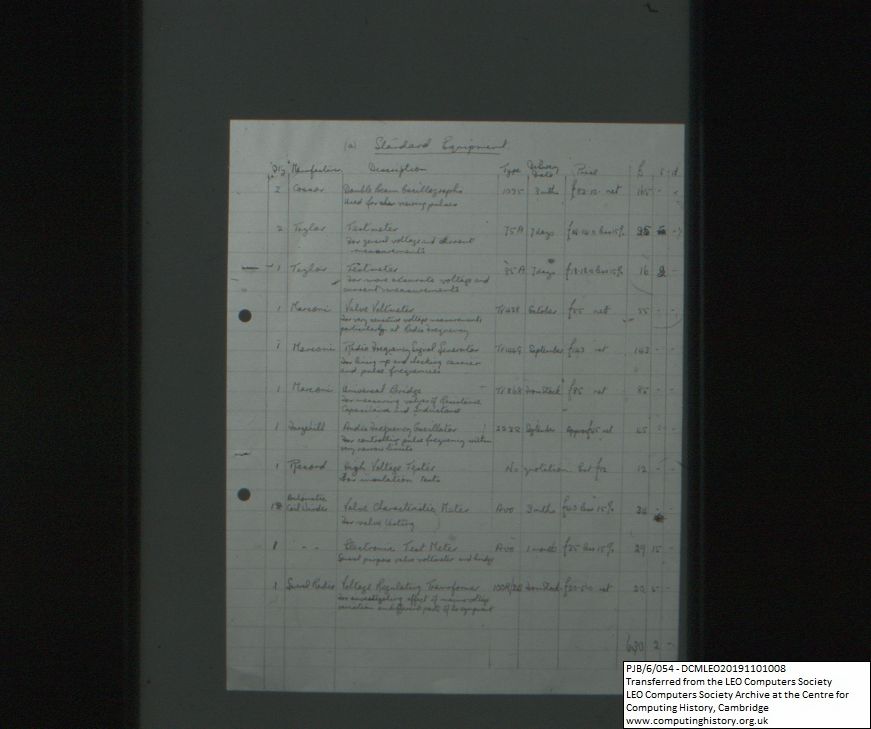 (a) Standard Equipment
Qty Manufacturer Description Type Delivery Date Price £ s d
2 Cossor Double Beam Oscillographs 1035 3 mths £82.10.- net 165 - -
Used for viewing pulses
2 Taylor Testmeter 75A 7 days less 15% 25
For general voltage and current
measurements
1 Taylor Testmeter 85A 7 days less 15% 16
For more accurate voltage and
current measurements
1 Marconi Valve Voltmeter October £55 net 55 - -
For very sensitive voltage measurements
particularly at Radio Frequency
1 Marconi Radio Frequency Signal Generator September £143 net 143 - -
For lining up and checking carrier
and pulse frequencies
1 Marconi Universal Bridge TF868 From Stock £85 net 85 - -
For measuring values of Resistance
Capacitance and Inductance
1 Audio Frequency Oscillator September Approx net 65 - -
For controlling pulse frequency within
very narrow limits
1 Record High Voltage Tester No quotation but £12 12 - -
For insulation tests
Automatic
1 Coil Winder Valve Characteristic Meter Avo 3 mths less 15%
For valve testing
1 - - Electronic Test Meter Avo 1 month £35 less 15% 29 15 -
General purpose valve voltmeter and bridge
1 Radio Voltage Regulating Transformer From Stock net 20 5 -
For investigating effect of mains voltage
variation on different parts of the equipment
630 2 -
PJB/6/054 - DCMLEO20191101008
Transferred from the LEO Computers Society
LEO Computers Society Archive at the Centre for
Computing History, Cambridge
www.computinghistory.org.uk